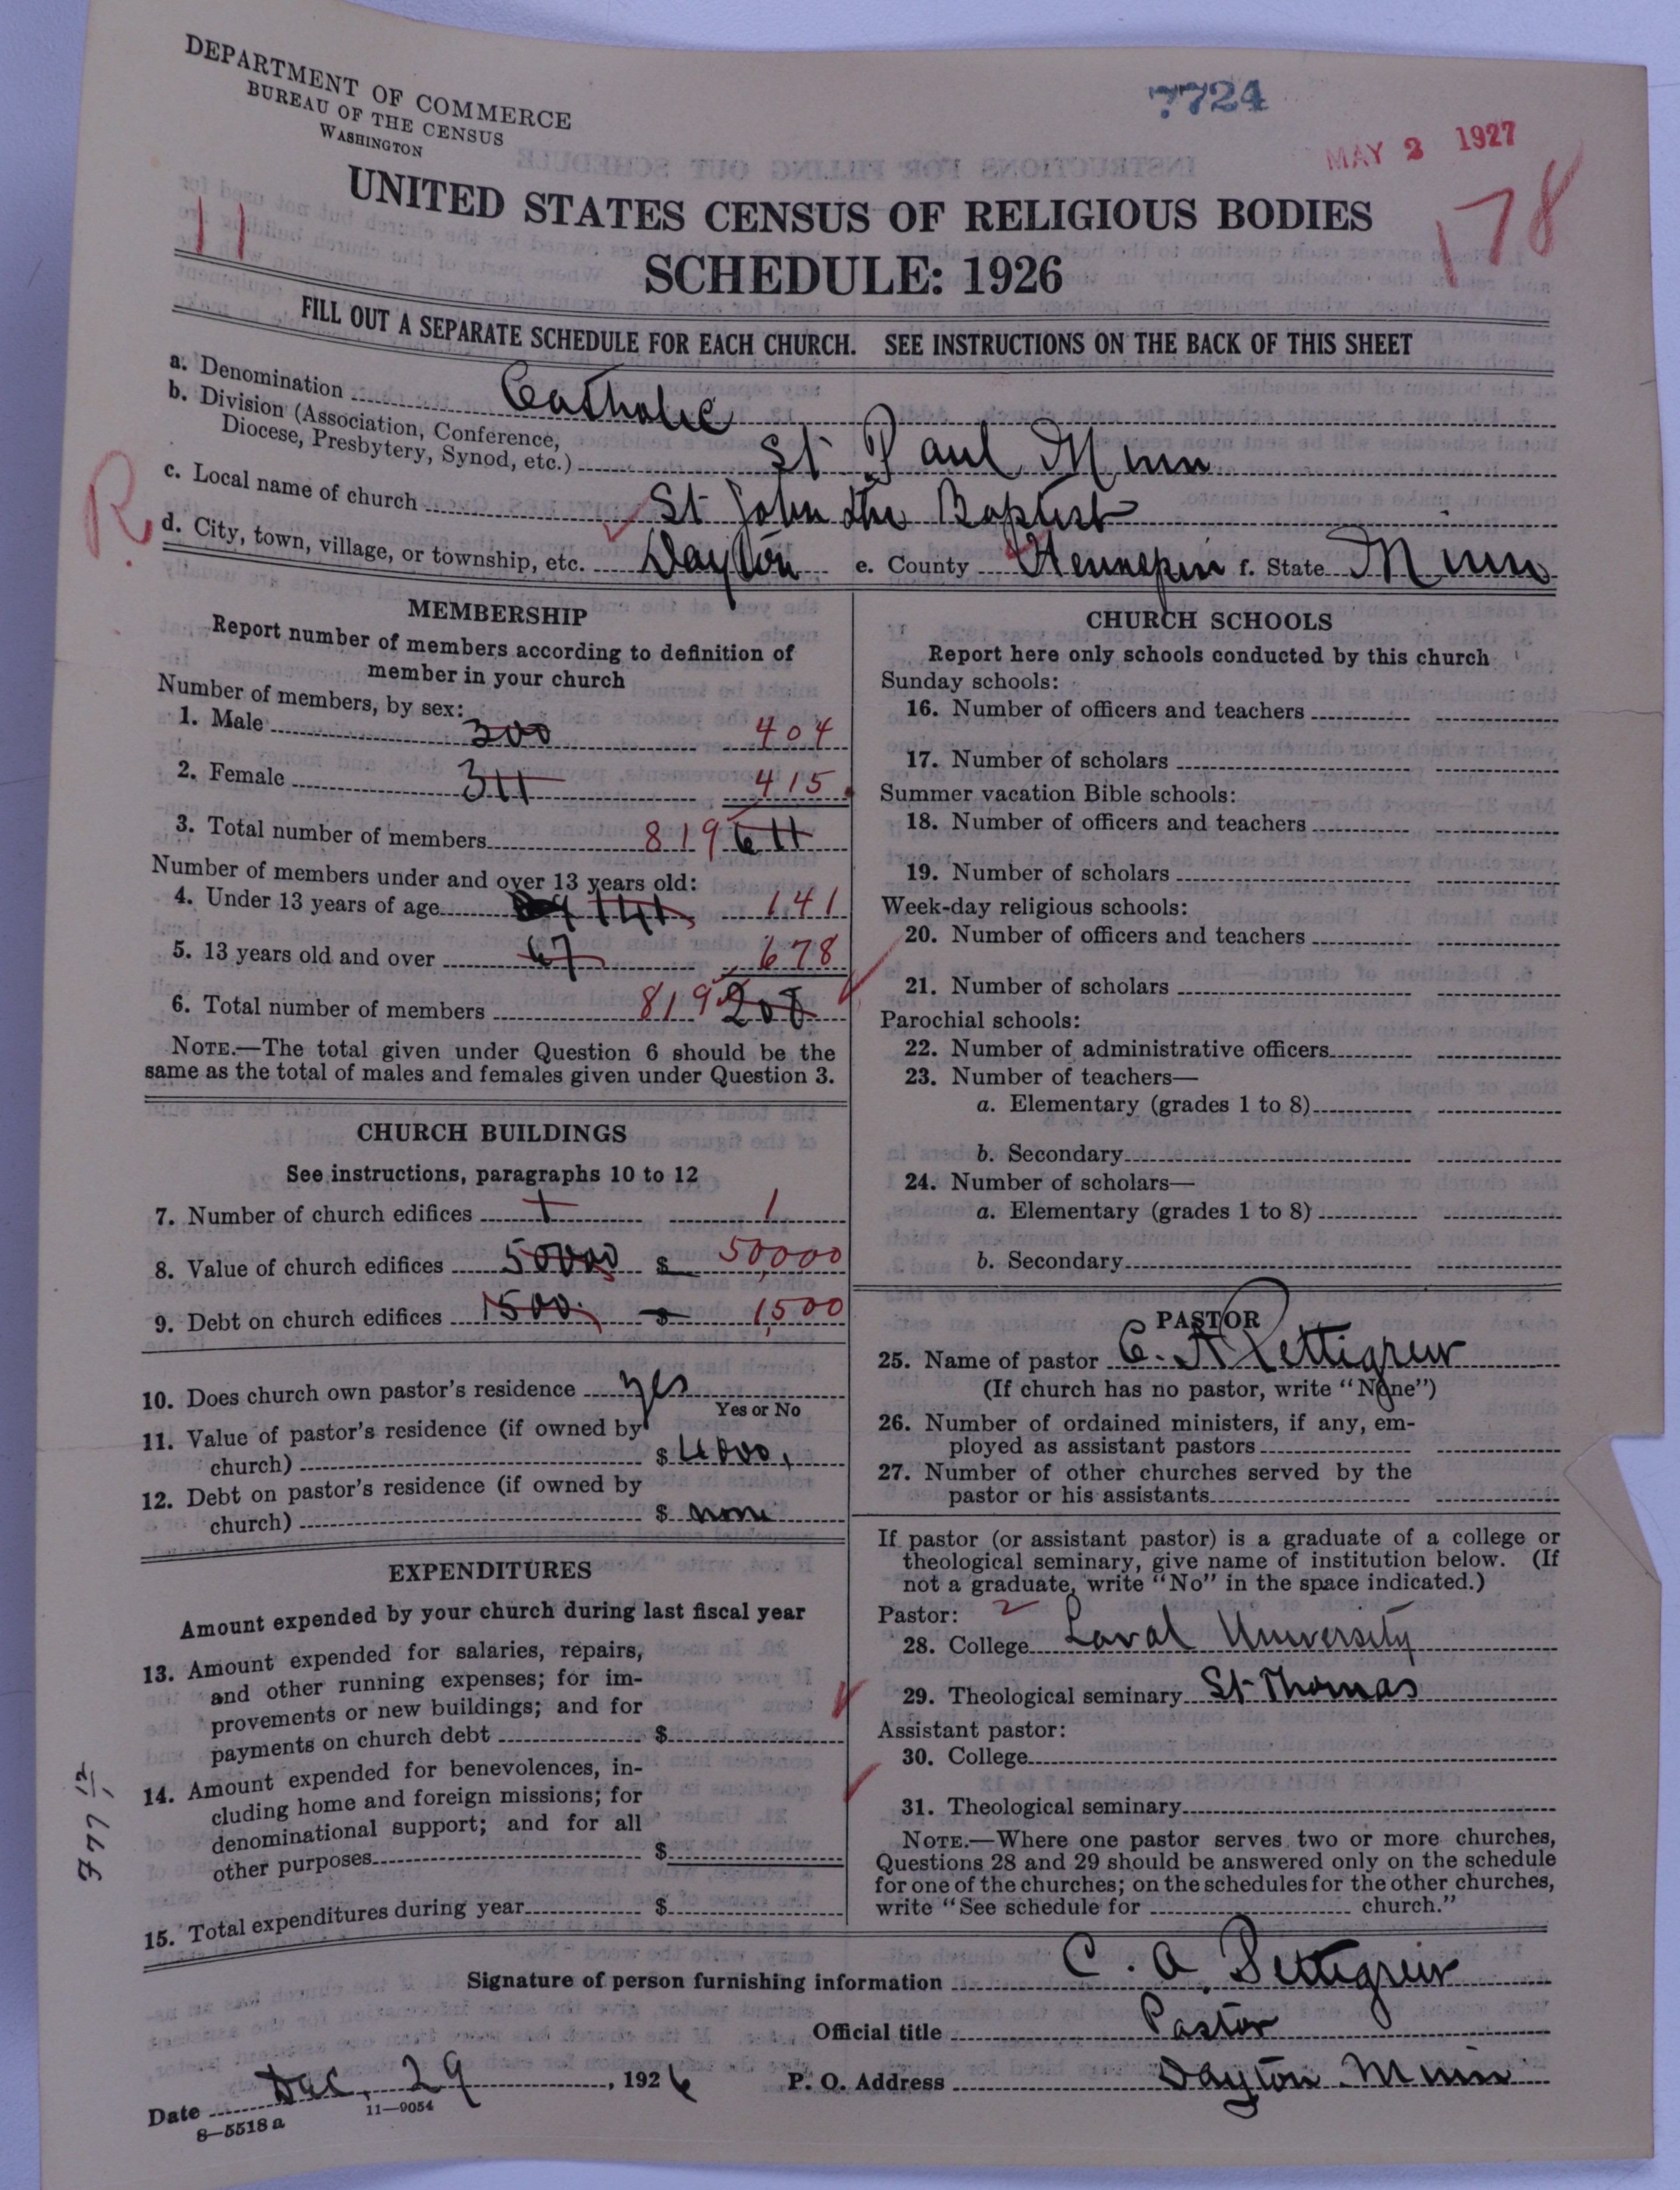 DEPARTMENT OF COMMERCE
BUREAU OF THE CENSUS
WASHINGTON
7724
MAY 2 1927
178
11
UNITED STATES CENSUS OF RELIGIOUS BODIES
SCHEDULE: 1926
FILL OUT A SEPARATE SCHEDULE FOR EACH CHURCH. SEE INSTRUCTIONS ON THE BACK OF THIS SHEET
a. Denomination Catholic
b. Division (Association, Conference,
Diocese, Presbytery, Synod, etc.) St Paul Minn
R
c. Local name of church St John the Baptist
d. City, town, village, or township, etc. Dayton e. County Hennepin f. State Minn
MEMBERSHIP
Report number of members according to definition of
member in your church
Number of members, by sex:
1. Male 300 404
2. Female 311 415
3. Total number of members 819 611
Number of members under and over 13 years old:
4. Under 13 years of age 141 141
5. 13 years old and over 67 678
6. Total number of members 819 208
NOTE.—The total given under Question 6 should be the
same as the total of males and females given under Question 3.
CHURCH BUILDINGS
See instructions, paragraphs 10 to 12
7. Number of church edifices 1 1
8. Value of church edifices 50000 $ 50,000
9. Debt on church edifices 1500. $ 1,500
10. Does church own pastor's residence yes
Yes or No
11. Value of pastor's residence (if owned by
church) $ 4000,
12. Debt on pastor's residence (if owned by
church) $ none
EXPENDITURES
Amount expended by your church during last fiscal year
13. Amount expended for salaries, repairs,
and other running expenses; for im-
provements or new buildings; and for
payments on church debt $
14. Amount expended for benevolences, in-
cluding home and foreign missions; for
denominational support; and for all
other purposes $
15. Total expenditures during year $
CHURCH SCHOOLS
Report here only schools conducted by this church
Sunday schools:
16. Number of officers and teachers
17. Number of scholars
Summer vacation Bible schools:
18. Number of officers and teachers
19. Number of scholars
Week-day religious schools:
20. Number of officers and teachers
21. Number of scholars
Parochial schools:
22. Number of administrative officers
23. Number of teachers—
a. Elementary (grades 1 to 8)
b. Secondary
24. Number of scholars—
a. Elementary (grades 1 to 8)
b. Secondary
PASTOR
25. Name of pastor C. A Pettigrew
(If church has no pastor, write "None")
26. Number of ordained ministers, if any, em-
ployed as assistant pastors
27. Number of other churches served by the
pastor or his assistants
If pastor (or assistant pastor) is a graduate of a college or
theological seminary, give name of institution below. (If
not a graduate, write "No" in the space indicated.)
Pastor: 2
28. College Laval University
29. Theological seminary St Thomas
Assistant pastor:
30. College
31. Theological seminary
NOTE.—Where one pastor serves two or more churches,
Questions 28 and 29 should be answered only on the schedule
for one of the churches; on the schedules for the other churches,
write "See schedule for church."
Signature of person furnishing information C. A. Pettigrew
Official title Pastor
Date Dec. 29, 1926 P. O. Address Dayton Minn
8—5518 a 11—9054